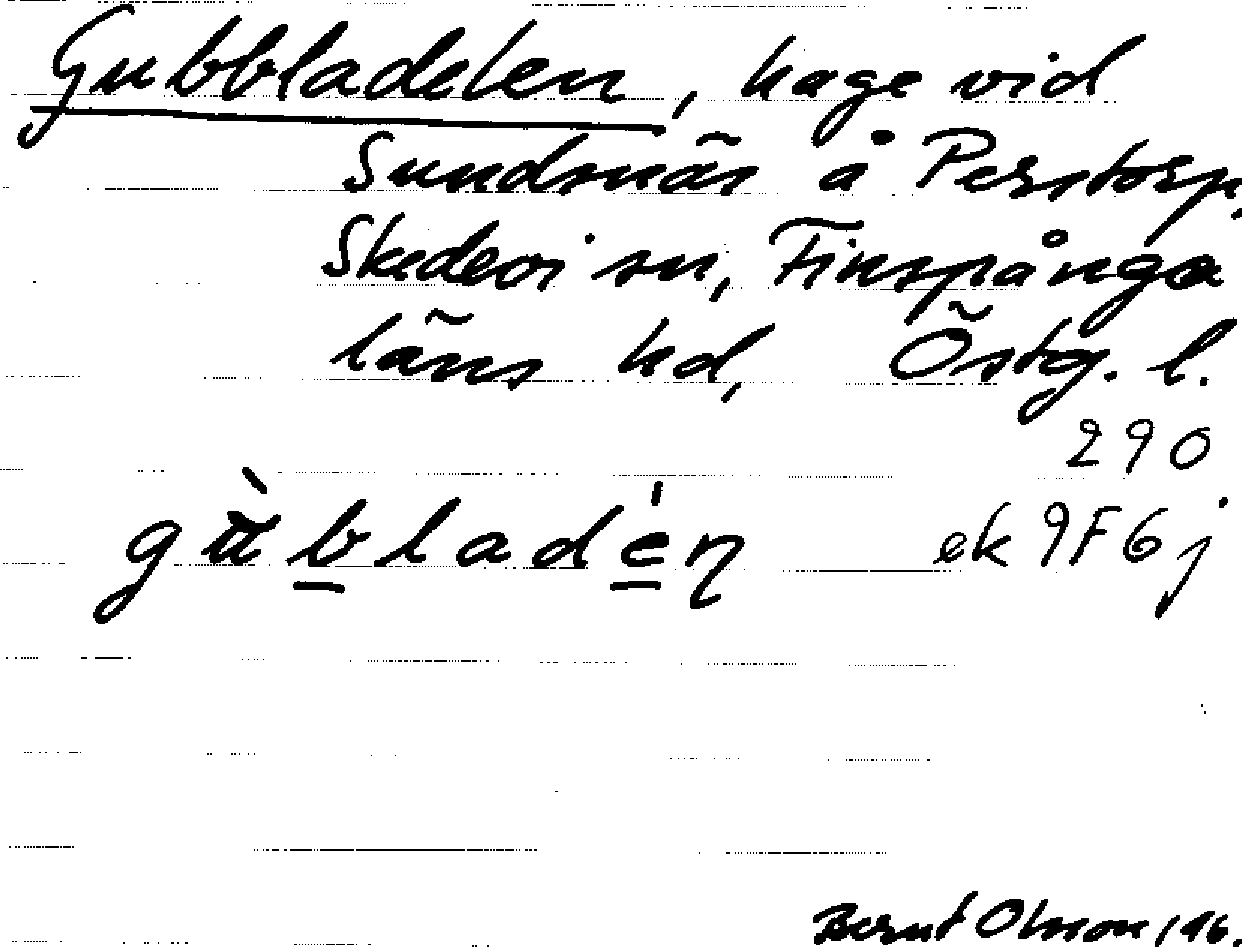 Gubbladelen, hage vid
Sundsnäs å Perstorp,
Skedevi sn, Finspånga
läns hd, Östg. l.
290
gὺb̲ladé̲n ek 9F6j
Bernt Olsson 196.